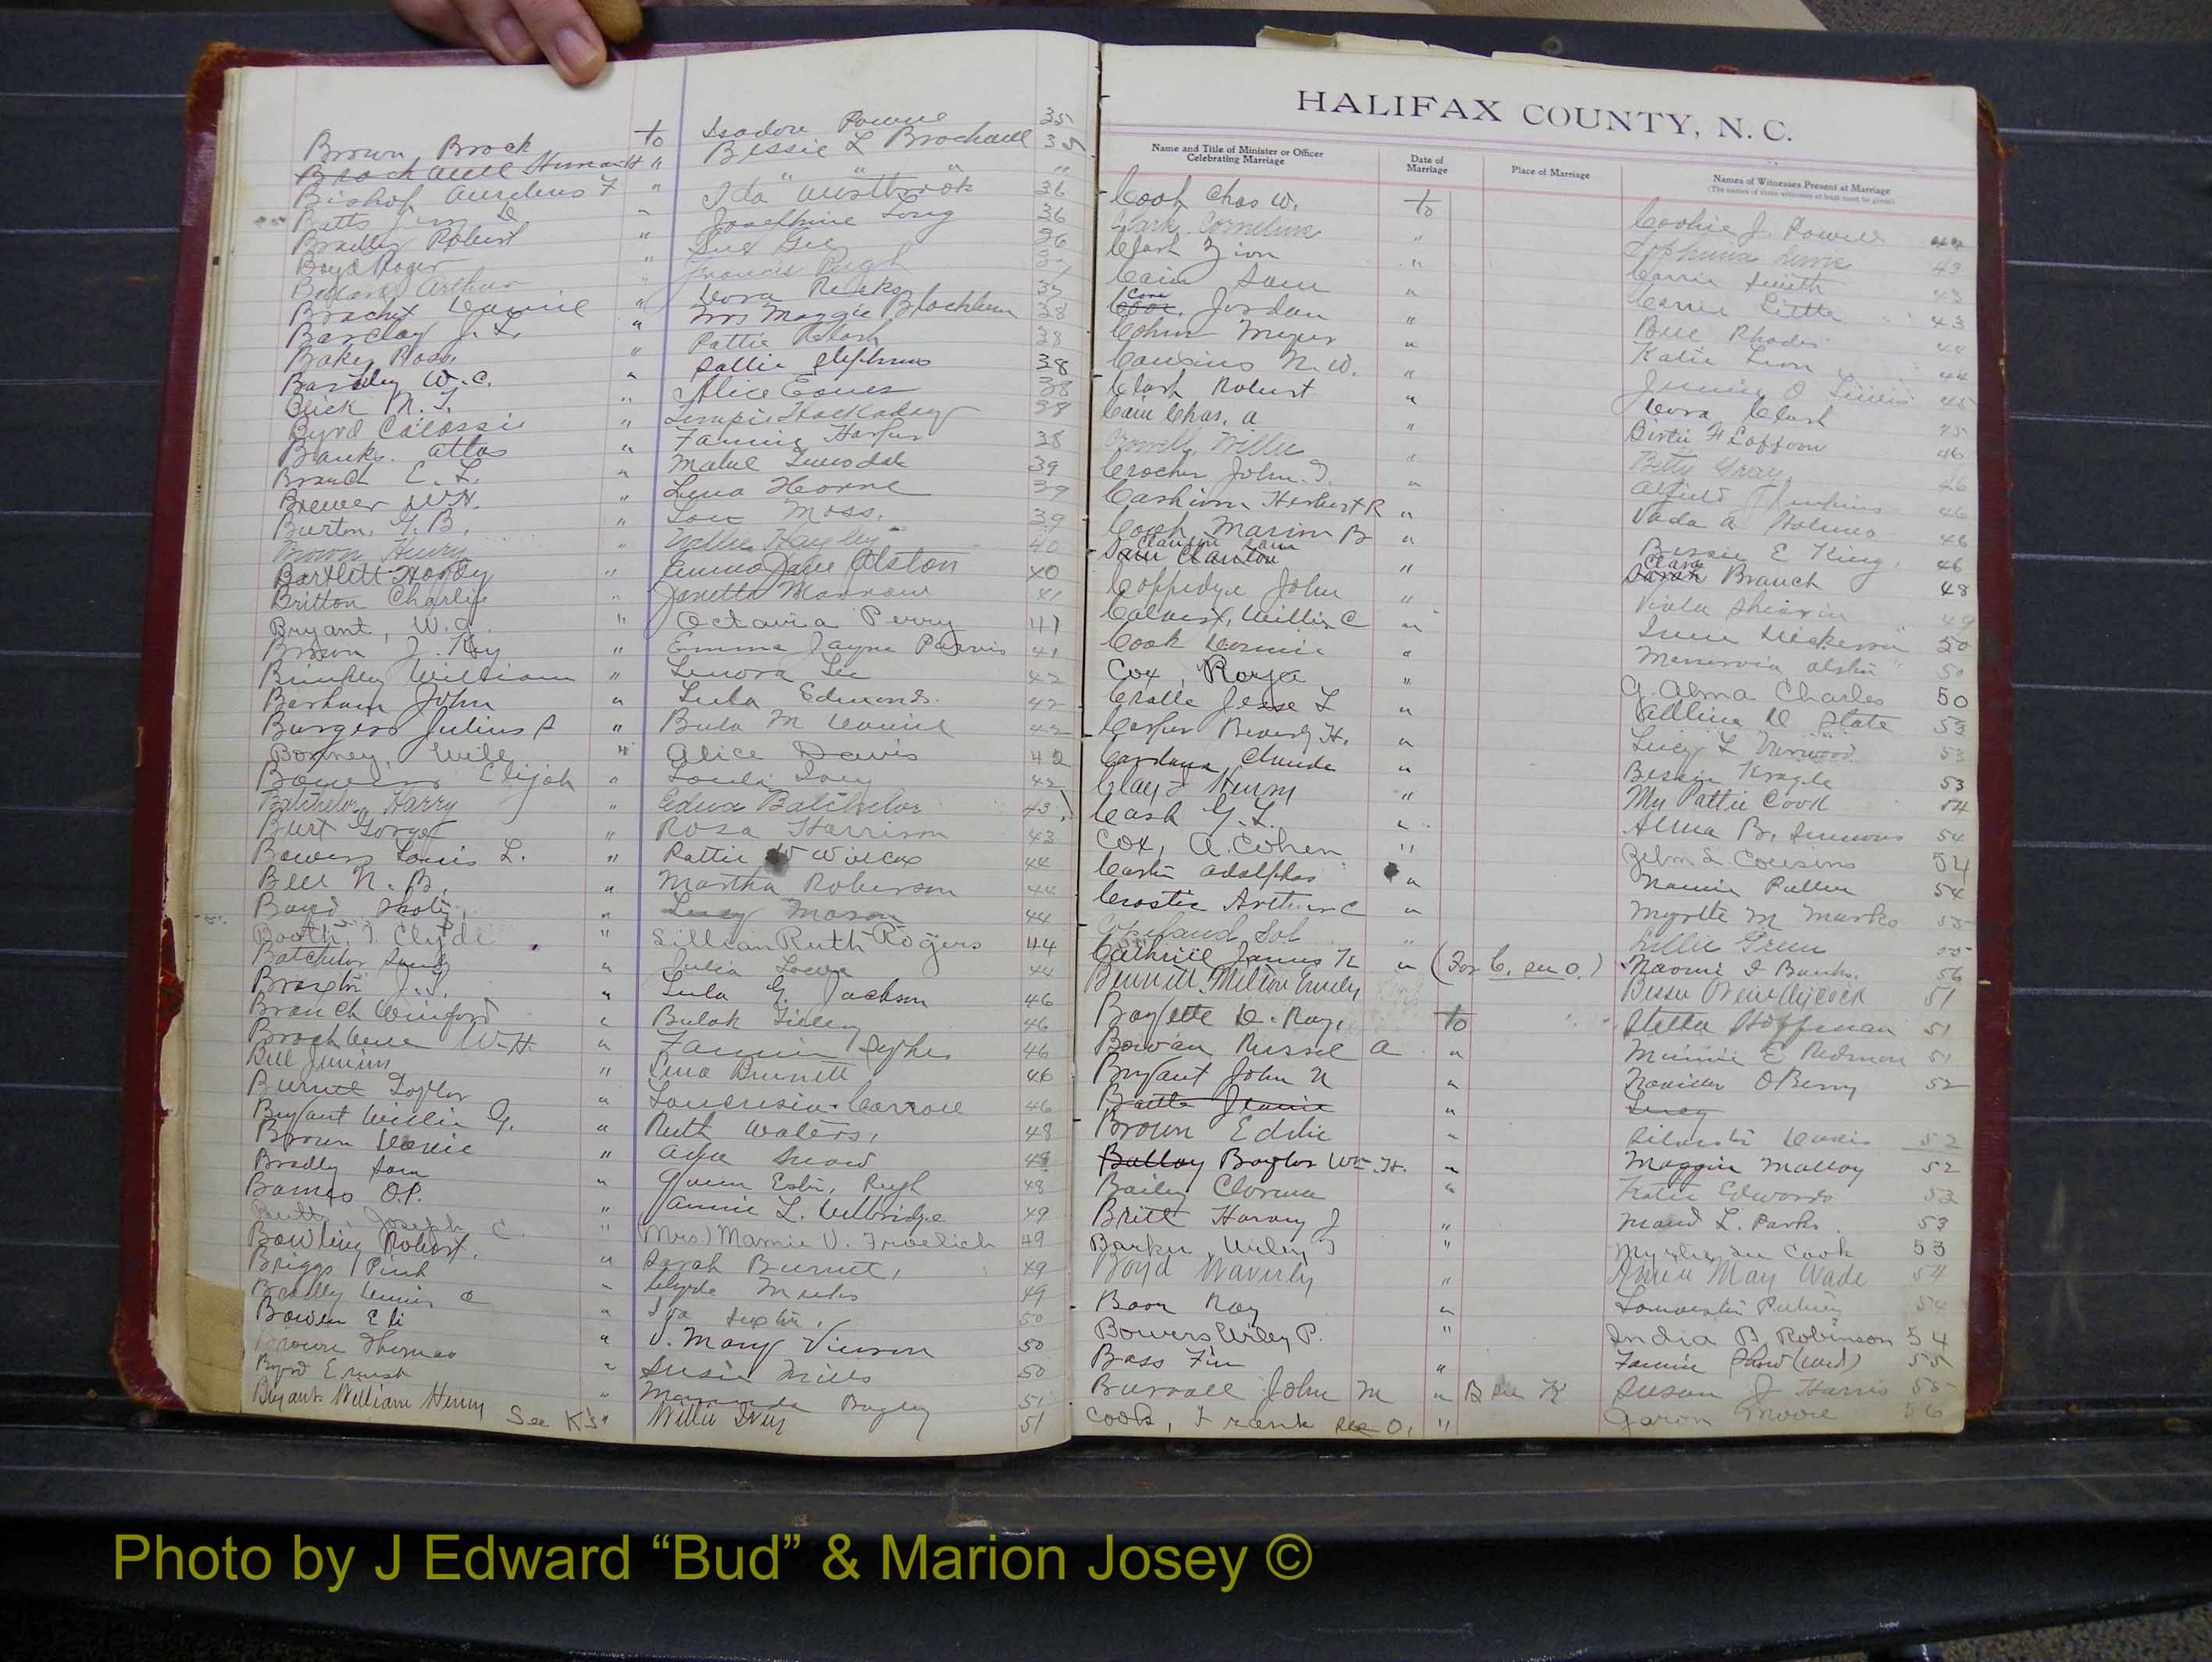 Brown Brock to Isadore Powell 35
Brockwell Herman H " Bessie L Brockwell 35
Bishop Aurelius F " " " " "
Betts Jim D " Ida Westbrook 36
Bradley Robert " Josephine Long 36
Boyd Roger " Sue Gee 36
Bellard Arthur " Francis Pugh 37
Brachet Daniel " Dora Ricks 37
Barclay J. L. " Mrs Maggie Blackburn 38
Baker Rosse " Pattie Clark 38
Bartley W. C. " Sallie Stephens 38
Click N. T. " Alice Eaves 38
Byrd Calassie " Tempie Hockaday 38
Banks. Atlas " Fannie Harper 38
Branch E. L. " Mabel Truesdale 39
Brewer W.H. " Lena Horne 39
Burton. G. B. " Lou Moss. 39
Brown Henry " Nellie Hayley 40
Bartlett Hardy " Emma Jane Alston 40
Britton Charlie " Janetta Manrow 41
Bryant, W. G. " Octavia Perry 41
Brown J. Roy " Emma Jayne Parvis 41
Brinkley William " Lenora Lee 42
Barham John " Lula Edmonds. 42
Burgess Julius A " Bula M Daniel 42
Bonney, Will " Alice Davis 42
Bowers Elijah " Loula Ivey 42
Batchelor Harry " Edna Batchelor 43
Burt George " Rosa Harrison 43
Bowers Louis L. " Pattie W Wilcox 44
Bell N. B. " Martha Roberson 44
Boyd " Lucy Mason 44
Booth. T. Clyde " Lillian Ruth Rogers 44
Batchelor " Julia 44
Braxton J. T. " Lula G. Jackson 46
Branch Winford " Bulah Lilley 46
Brockwell W. H. " Fannie Sykes 46
Bell Junius " Lena Burnett 46
Burnett Taylor " Carroll 46
Bryant Willie G. " Ruth Waters, 48
Brown " Ada Snead 48
Bradly Sam " Queen Pugh 48
Barnes O.P. " Fannie L. Wilbridge 49
Butts Joseph C. " (Mrs) Mamie V. Froelich 49
Bowling Robert. " Sarah Burnet, 49
Briggs Pink " Clyde Meeks 49
Bradly " Ida 50
Bowen Eli " V. Mary Vinson 50
Browne Thomas " Susie Mills 50
Byrd Ernest " Bagley 51
Bryant William Henry See K's " Willie Ivey 51
HALIFAX COUNTY, N. C.
Name and Title of Minister or Officer Celebrating Marriage Date of Marriage Place of Marriage Names of Witnesses Present at Marriage
(The names of three witnesses at least must be given)
Cook Chas W. to Cookie J. Powell 42
Clark Cornelius " Sophinia 43
Clark Zion " Carrie Smith 43
Cain Sam " Carrie Little 43
Cook Cone Jordan " Bell Rhodes 44
Cohen Meyer " Katie Leon 44
Cousins N. W. " Jennie O 45
Clark Robert " Dora Clark 45
Cain Chas. A " Birtie H Laffoon 46
Crowell, Willie " Betty Gray 46
Crocker John. T. " 46
Cashion Herbert R " Vada A Holmes 46
Cook Marion B " Bessie E King. 46
Sam Clanton Clanton Sam " Sarah Clara Branch 48
Coppedge John " Viola Shearin 49
Calvert, Willie C " Irene Dickerson 50
Cook " Alston 50
Cox, Roya " G. Alma Charles 50
Cralle Jesse L " Adline D State 53
Casper Beverly H. " Lucy L Norwood 53
Claude " Bessie 53
Clay Henry " My Pattie Cook 54
Cash G. L. " Alma B. Simmons 54
Cox, A. Cohen " Zelm L Cousins 54
Adolphas " Nannie Pullen 54
Arthur C " Myrtle M Marks 55
Copeland Sol " Lillie Green 55
Cuthriell James K " (For C. see O.) Naomi I Banks. 56
Burnett Milton Emily Bessie 51
D. Ray, to Stella Hoffman 51
Bowan Russel A " Minnie E Redman 51
Bryant John N " OBerry 52
Battle Jeannie " Lucy
Brown Eddie " Davis 52
Balloy Baylor Wm. H. " Maggie Malloy 52
Bailey Clorina " Katie Edwards 53
Britt Harvey J " Maud L. Parks 53
Barker Wiley T " Cook 53
Boyd Waverly " Annie May Wade 54
Boon Roy " 54
Bowers Wiley P. " India B. Robinson 54
Bass Jim " Fannie 55
Burrell John M " B see K Susan J Harris 55
Cook, Frank see O. " Moore 56
Photo by J Edward “Bud” & Marion Josey ©